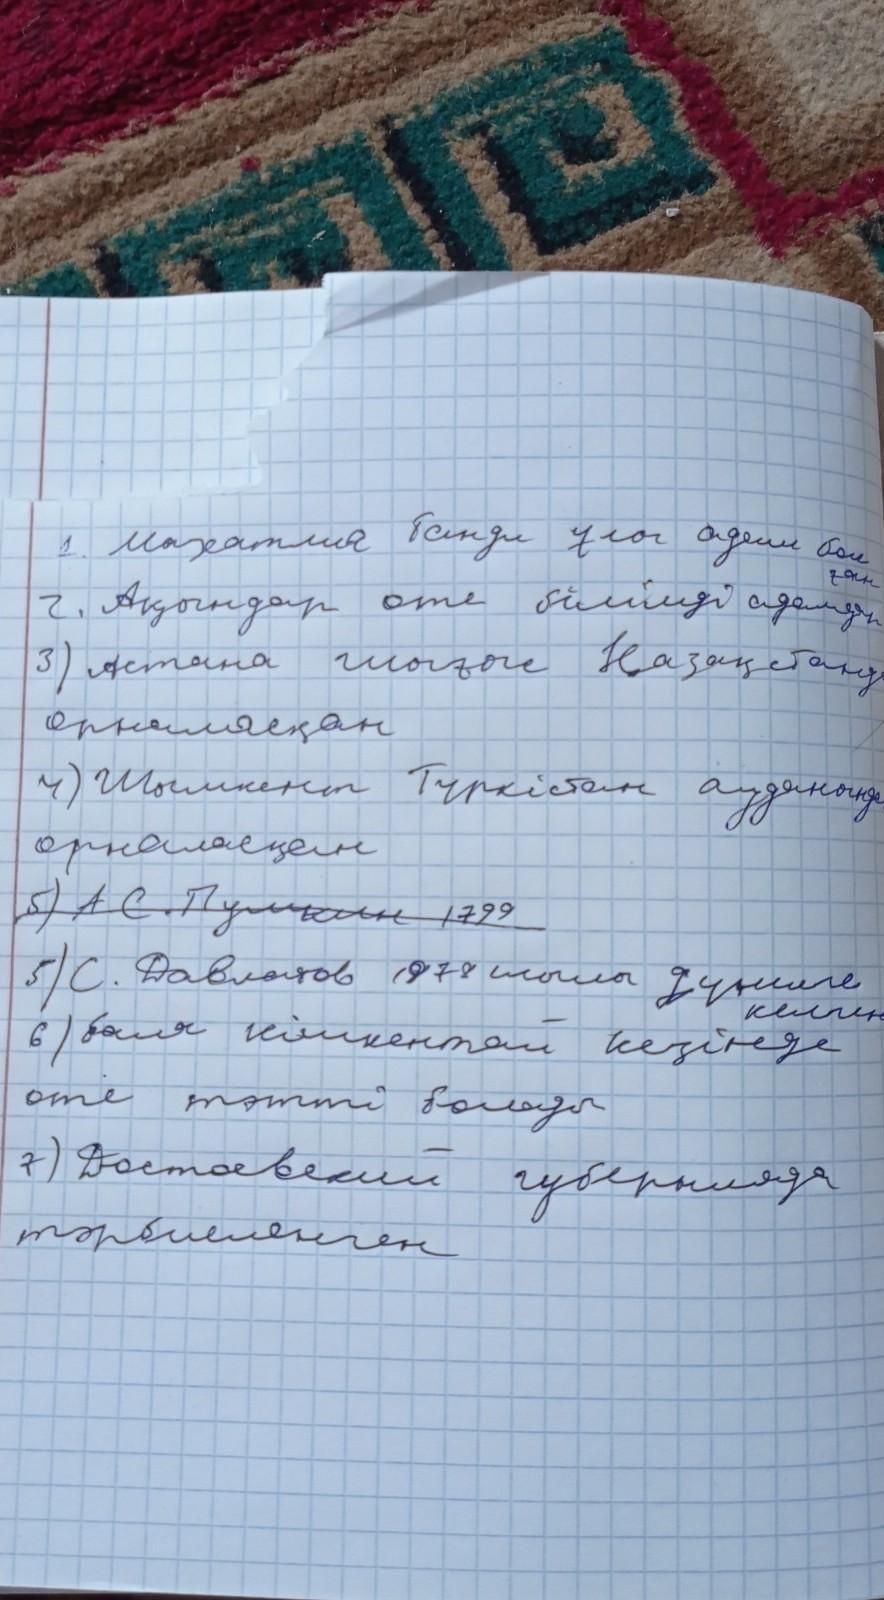 1. Махатма Ганди ұлы адам бол
ған
2. Ақындар оте білімді адамдар
3) Астана шығыс Қазақстанда
орналасқан
4) Шымкент Түркістан ауданында
орналасқан
5) А С. Пушкин 1799
5) С. Давлатов 1978 жылы дүниеге
келген
6) бала кішкентай кезінде
оте тәтті болады
7) Достоевский губернияда
тәрбиеленген